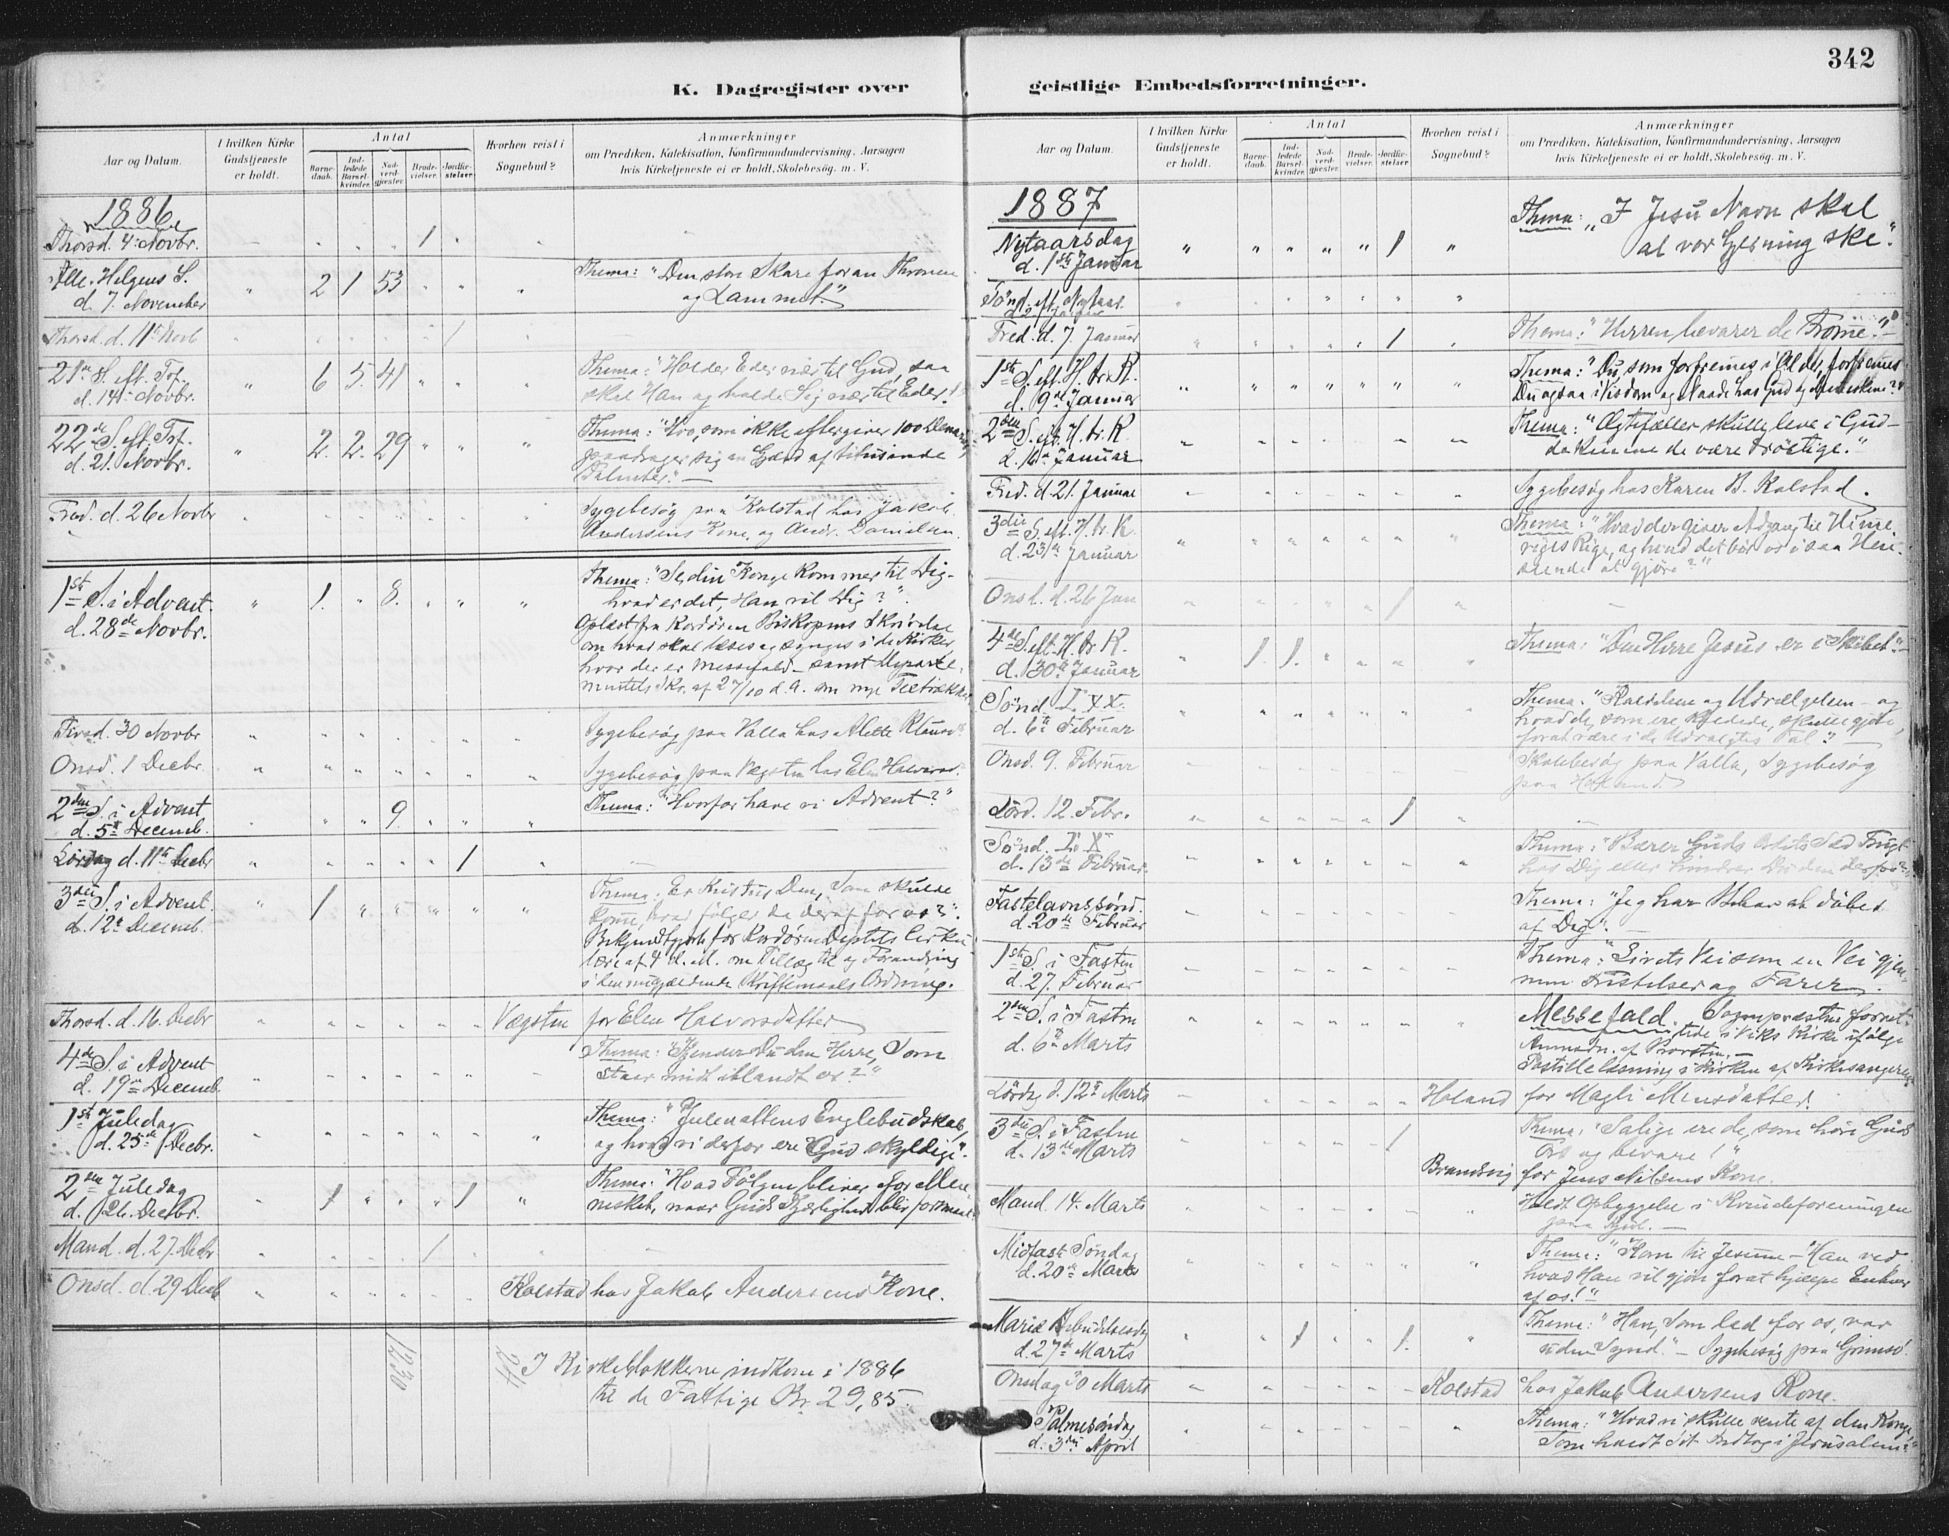 342
K. Dagregister over geistlige Embedsforretninger.
Aar og Datum.
I hvilken Kirke Gudstjeneste er holdt.
Antal
Barnedaab.
Indledede Barselkvinder.
Nadverdgjester.
Brudevielser.
Jordfæstelser.
Hvorhen reist i Sognebud?
Anmærkninger
om Prædiken, Katekisation, Konfirmandundervisning, Aarsagen
hvis Kirketjeneste ei er holdt, Skolebesøg. m. V.
1886
Thorsd. 4. Novbr. 1
Alle Helgens S. 2 1 53 Thema: "Den store Skare foran Thronen
d. 7. November og Lammet."
Thorsd. d. 11te Novb 1
21de S. eft. Trf. 6 5. 41 Thema: "Holder Eder nær til Gud, saa
d. 14de Novbr. skal Han og holde Sig nær til Eder."
22de S. eft. Trf. 2. 2. 29 Thema: "Hvo, som ikke eftergiver 100
d. 21. Novbr. paadrager sig en Gjæld af titusinde
Talenter."
Fred. d. 26 Novbr Sygebesøg paa Kolstad hos Jakob
Andersens Kone, og Andr. Danielsen.
1st S. i Advent. 1. 8. Thema: "Se, din Konge kommer til Dig -
d. 28de Novbr. hvad er det, Han vil Dig?".
Oplæst fra Kordøren Biskopens Skrivelse
om hvad skal læses og synges i de Kirker,
hvor der er Messefald - samt Departe
mentets Skr. af 27/10 d. A. om nye
Tirsd. 30 Novbr Sygebesøg paa Valla hos Alette
Onsd. 1 Decbr. Sygebesøg paa Vægsten hos Elen
2den S. i Advent 9. Thema: "Hvorfor have vi Advent?"
d. 5te Decemb.
Lørdag d. 11te Decbr 1
3die S. i Advent. 1 Thema: Er Kristus Den, Som skulde
d. 12te Decemb. komme, hvad følger da deraf for os?".
Bekjendtgjort fra Kordøren
lære af 4 d. M. om Tillæg til og Forandring
i den nugjældende Skriftemaals Ordning.
Thorsd. d. 16. Decbr Vægsten for Elen Halvorsdatter
4de S. i Advent Thema: "Kjender Du den Herre, Som
d. 19de Decemb. staar midt iblandt os?"
1st Juledag Thema: "Juleaftens Englebudskab,
d. 25de Decbr. og hvad vi derfor ere Gud skyldige".
2den Juledag 1 1 Thema: "Hvad Følgen bliver for Men
d. 26. Decbr. nesket, naar Guds Kjærlighed bliver
Mand. d. 27. Decbr 1
Onsd. d. 29 Decb Kolstad hos Jakob Andersens Kone.
1230
I Kirkeblokkerne indkom i 1886
til de Fattige Kr 29,85
Aar og Datum.
I hvilken Kirke Gudstjeneste er holdt.
Antal
Barnedaab.
Indledede Barselkvinder.
Nadverdgjester.
Brudevielser.
Jordfæstelser.
Hvorhen reist i Sognebud?
Anmærkninger
om Prædiken, Katekisation, Konfirmandundervisning, Aarsagen
hvis Kirketjeneste ei er holdt, Skolebesøg. m. V.
1887
Nytaarsdag 1 Thema: "I Jesu Navn skal
d. 1st Januar al vor Gjerning ske".
Sønd. eft. Nytaar
Fred. d. 7. Januar 1 Thema: "Herren bevarer de Fromme."
1st S. eft. H. tr. K. Thema: "Du, som forfremes i Alder, forfremes
d. 9de Januar Du ogsaa i Visdom og Naade hos Gud og Menneskene?"
2den S. eft. H. tr. K. Thema: "Ægtefæller skulle leve i Gud -
d. 16de Januar da kunne de være trøstige."
Fred. d. 21. Januar Sygebesøg hos Karen B. Kolstad.
3die S. eft. H. tr. K. Thema: "Hvad der giver Adgang til Himme
d. 23de Januar riges Rige, og hvad det bør os i saa Hen-
seende at gjøre?"
Onsd. d. 26 Jan 1
4de S. eft. H. tr. K. 1. 1. Thema: "Den Herre Jesus er i Skibet."
d. 30te Januar
Sønd. LXX. Thema: "Kaldelsen og Udvælgelsen - og
d. 6te Februar hvad de, som ere kaldede, skulle gjøre,
forat være i de Udvalgtes Tal?
Onsd. 9. Februar Skolebesøg paa Valla, Sygebesøg
paa Holand
Lørd. 12. Febr. 1
Sønd. LX Thema: "Bærer Guds Ords Sæd Frugt
d. 13de Februar. hos Dig eller hindrer Du den derfor?
Fastelavnssønd. Thema: "Jeg har Behov at døbes
d. 20de Februar af Dig".
1st S. i Fasten Thema: "Livets Vei som en Vei gjen-
d. 27. Februar nem Fristelser og Farer.
2den S. i Fasten Messefald. Sognepræsten forret-
d. 6te Marts tede i Viks Kirke ifølge
Anmodn. af Provsten.
Postillelæsning i Kirken af Kirkesangeren
Lørdag d. 12te Marts Holand for Magli Monsdatter.
3die S. i Fasten 1 Thema: "Salige ere de, som høre Guds
d. 13de Marts Ord og bevare!"
Brandsvig for Jens Nilsens Kone.
Mand. 14. Marts Holdt Opbyggelse i Kvindeforeningen
Midfaste Søndag Thema: "Kom til Jesum - Han ved
d. 20de Marts hvad Han vil gjøre forat hjælpe Enhver
af os!"
Mariæ Bebudelsesdag 1 1. Thema: "Han, Som led for os, var
d. 27de Marts uden Synd." - Sygebesøg paa
Onsdag 30 Marts Kolstad hos Jakob Andersens Kone.
Palmesøndag Thema: "Hvad vi skulle vente af den Konge,
d. 3die April Som holdt Sit Indtog i Jerusalem?"